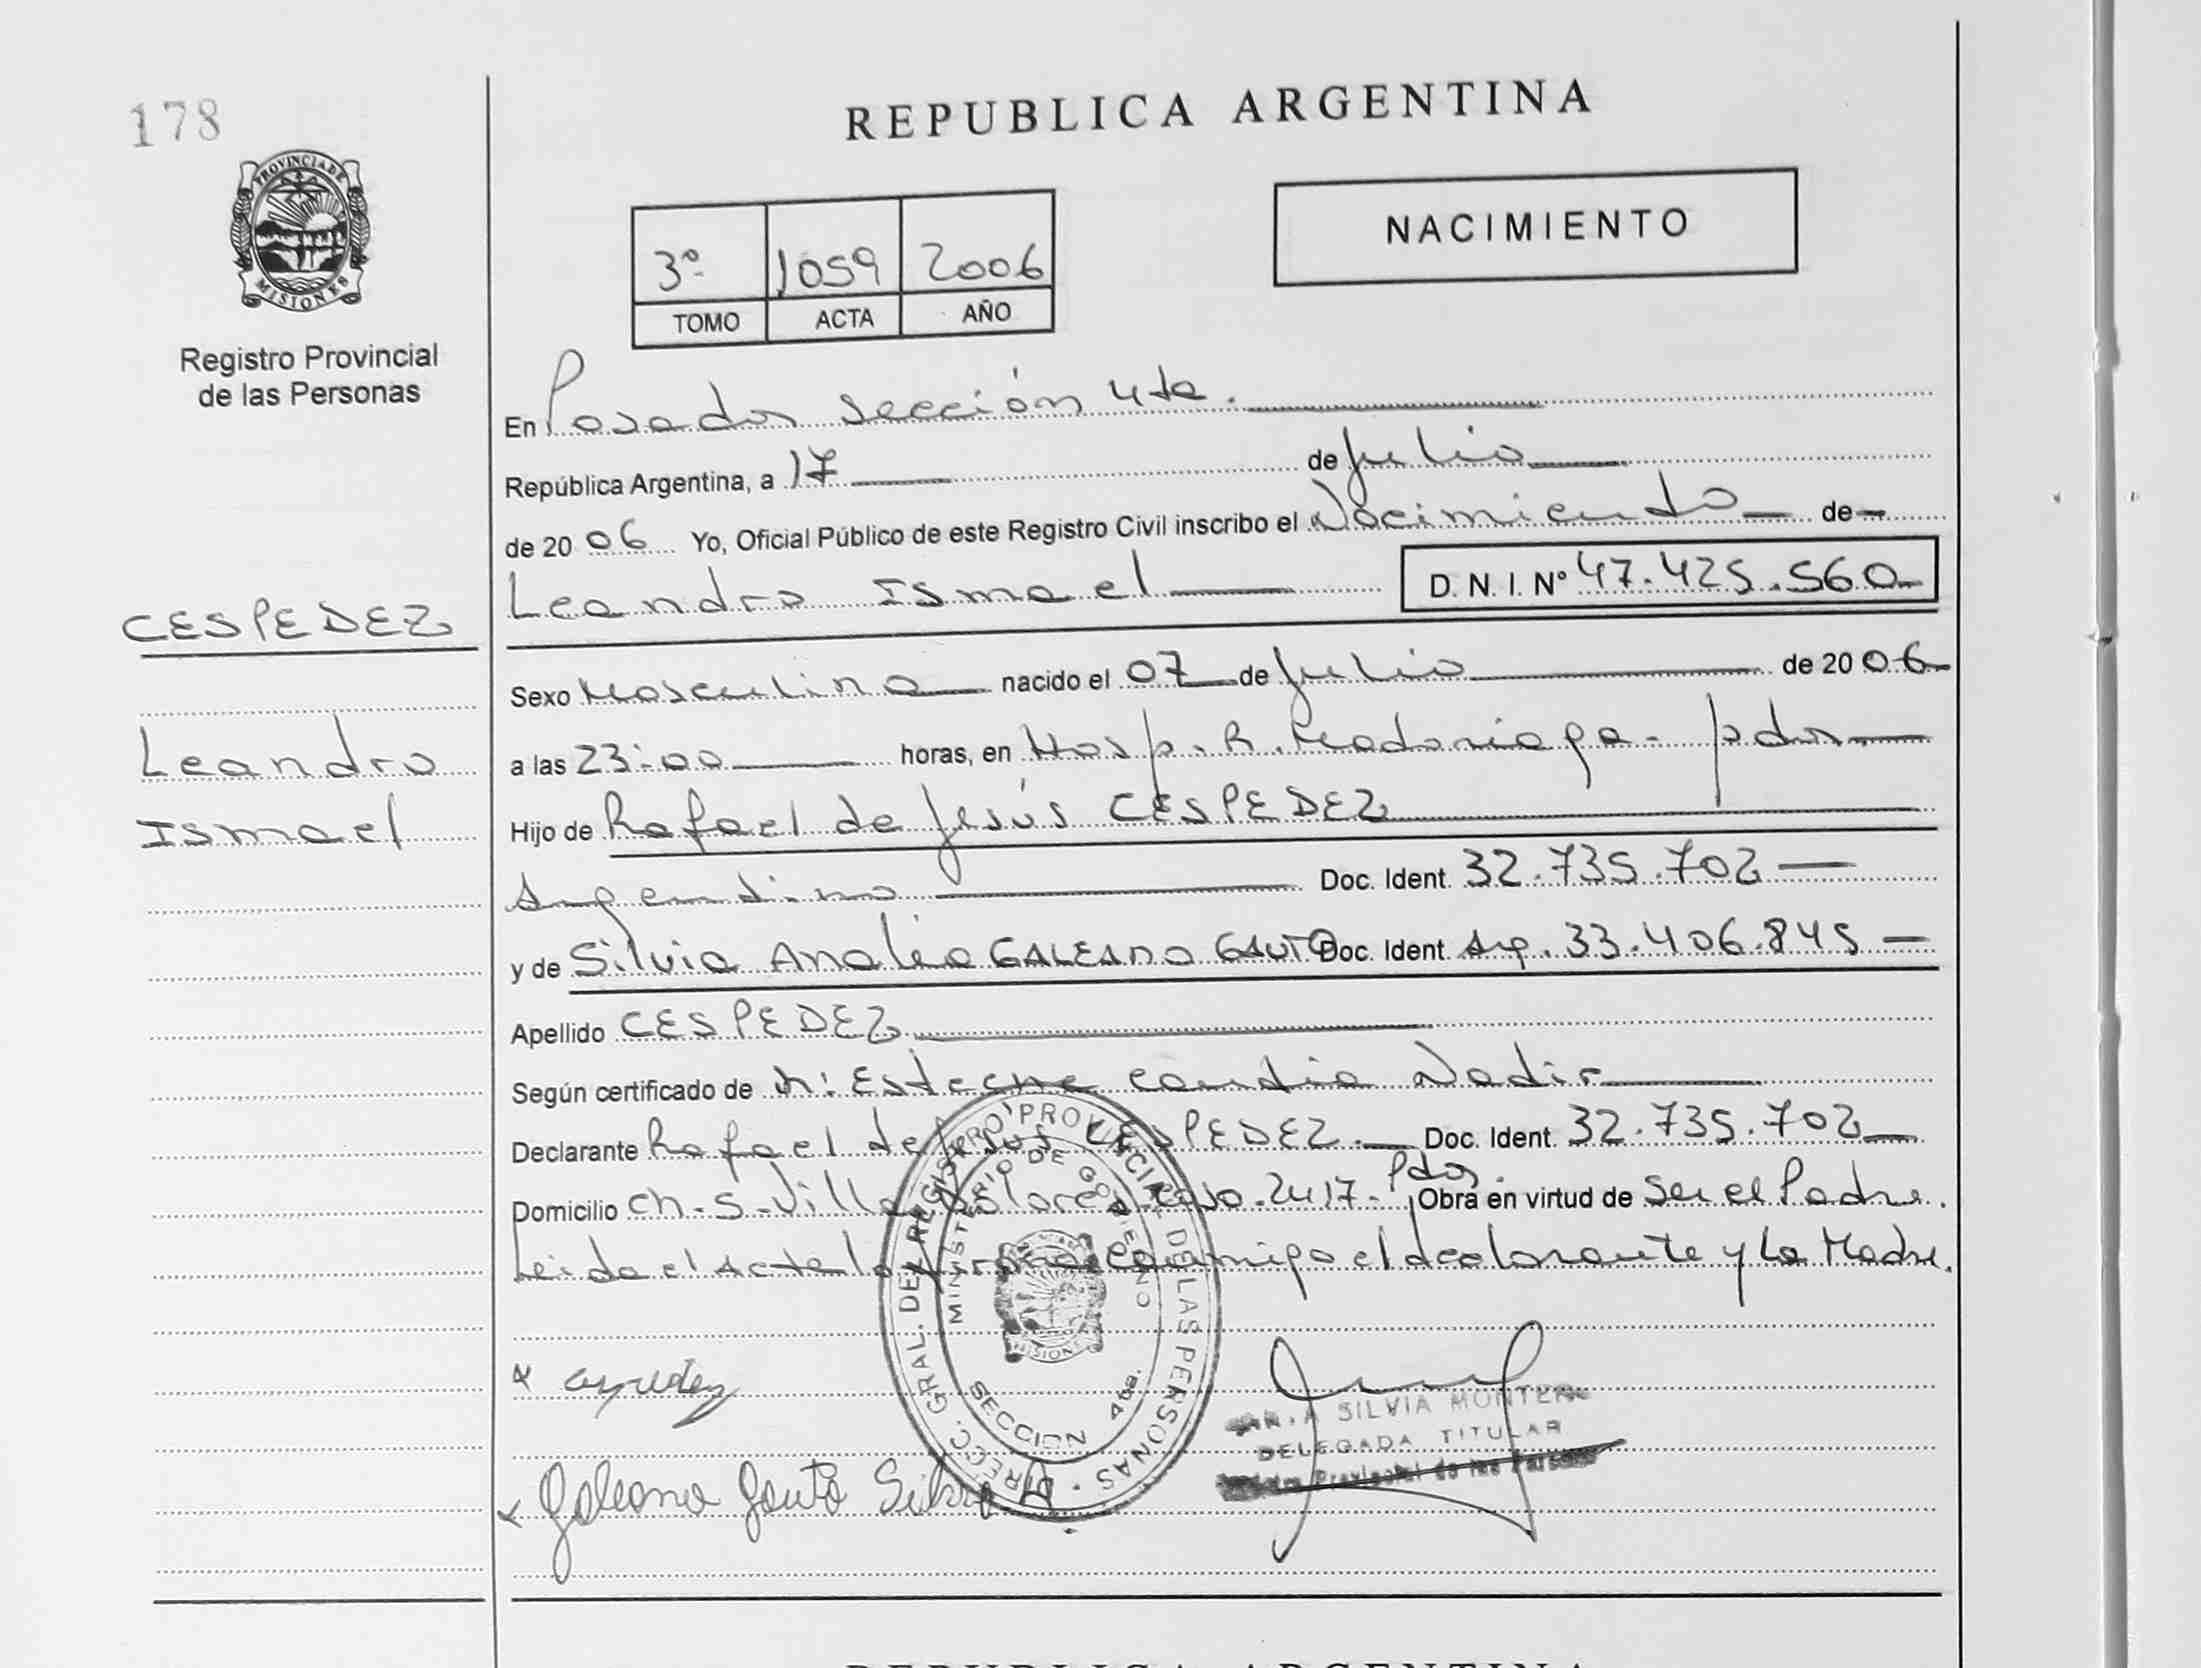 178
PROVINCIA DE
MISIONES
Registro Provincial
de las Personas
REPUBLICA ARGENTINA
NACIMIENTO
3º 1059 2006
TOMO ACTA AÑO
En Posadas sección 4ta.
República Argentina, a 17 de Julio
de 2006 Yo, Oficial Público de este Registro Civil inscribo el Nacimiento de
Leandro Ismael D. N. I. Nº 47.425.560
CESPEDEZ
Leandro
Ismael
Sexo Masculino nacido el 07 de Julio de 2006
a las 23:00 horas, en Hosp. R. Madariaga - Pdas
Hijo de Rafael de Jesús CESPEDEZ
Argentino Doc. Ident. 32.735.702
y de Silvia Analia GALEANO GAUTO Doc. Ident. Arg. 33.406.845
Apellido CESPEDEZ
Según certificado de Nadir
Declarante Rafael de Jesus CESPEDEZ. Doc. Ident. 32.735.702
Domicilio Ch. S. Villa Dolores 2417. Pdas. Obra en virtud de Ser el Padre.
Leida el Acta la conmigo el declarante y La Madre.
DIREC. GRAL. DEL REGISTRO PROVINCIAL DE LAS PERSONAS
MINISTERIO DE GOBIERNO
MISIONES
SECCION 4ta.
Galeano Gauto Silvia A
SILVIA MONTERO
DELEGADA TITULAR
Registro Provincial de las Personas
REPUBLICA ARGENTINA